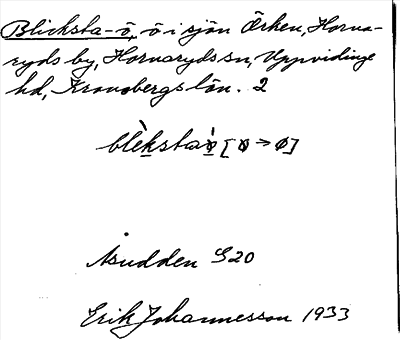 Blicksta-ö, ö i sjön Örken, Horna-
ryds by, Hornaryds sn, Uppvidinge
hd, Kronobergs län. 2
blèkstaö̀ [ɵ → ø]
Asudden S20
Erik Johannesson 1933